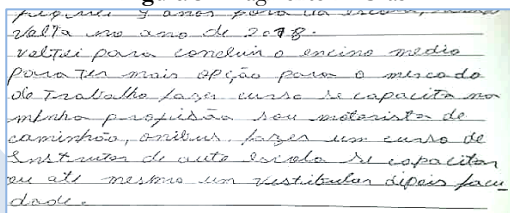 fiquei 9 anos fora da escola,
valta no ano de 2018.
voltei para concluin o encino médio
para ter mais opção para o mercado
de Trabalho fazer curso se capacita na
minha profissão sou motorista de
caminhão, onibus, fazer um curso de
Instrutor de auto escola se capacitar
ou até mesmo um vestibular dipois facu
dade.